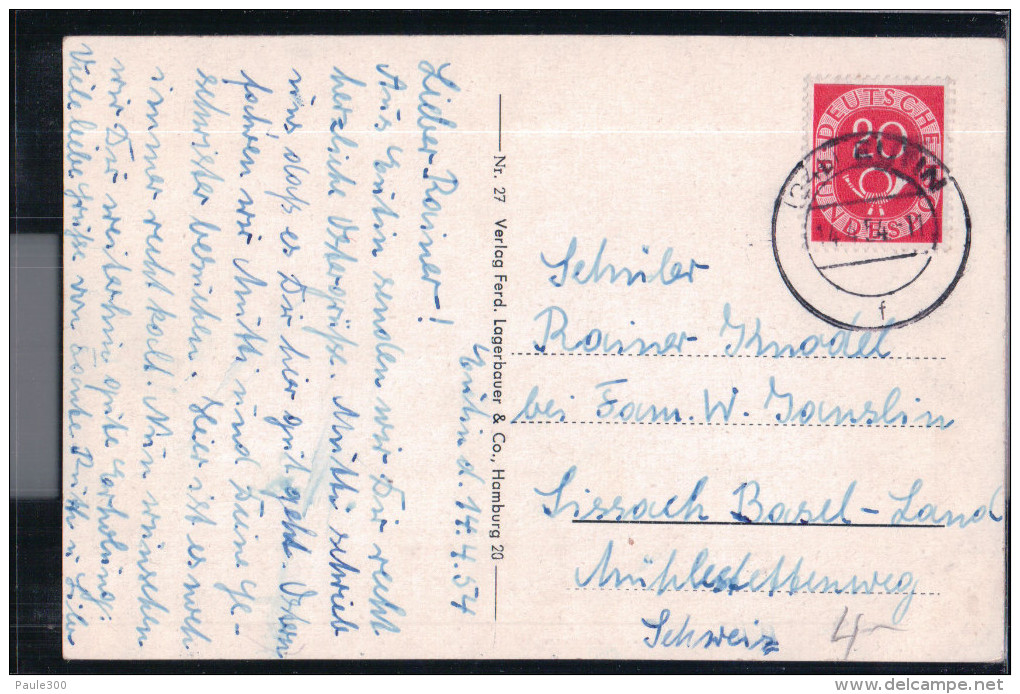 Eutin d. 14.4.54
Lieber Rainer!
Aus Eutin senden wir Dir recht
herzliche Ostergrüße. Mutti schrieb
uns daß es Dir hier gut geht. Ostern
fahren wir Mutti und Deine Ge-
schwister besuchen. Hier ist es noch
immer recht kalt. Nun wünschen
wir Dir weiterhin gute Erholung.
Viele liebe Grüße von Tante Ruth u.
Nr. 27 Verlag Ferd. Lagerbauer & Co., Hamburg 20
DEUTSCHE
BUNDESPOST
20
f
Schüler
Rainer Knodel
bei Fam. W. Janslin
Sissach Basel-Land
Mühlestettenweg
Schweiz
4-
Paule300